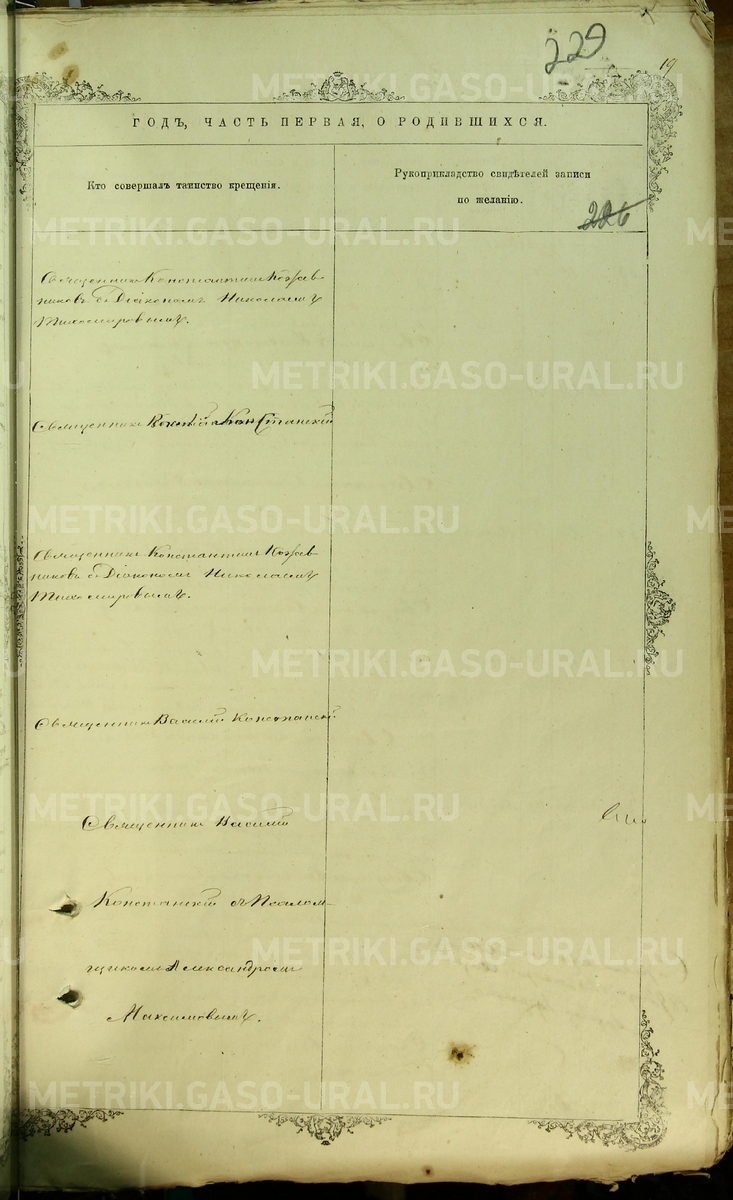 229
19
ГОДЪ, ЧАСТЬ ПЕРВАЯ, О РОДИВШИХСЯ.
Кто совершалъ таинство крещенія.
Рукоприкладство свидѣтелей записи
по желанію.
226
Священникъ Константинъ Кожев-
никовъ съ Діакономъ Николаемъ
Тихомировымъ.
Священникъ Константскій
Священникъ Константинъ Кожев-
никовъ съ Діакономъ Николаемъ
Тихомировымъ.
Священникъ Василій Констанскій
Священникъ Василій
Констанскій съ Псалом-
щикомъ Александромъ
Максимовымъ.
METRIKI.GASO-URAL.RU